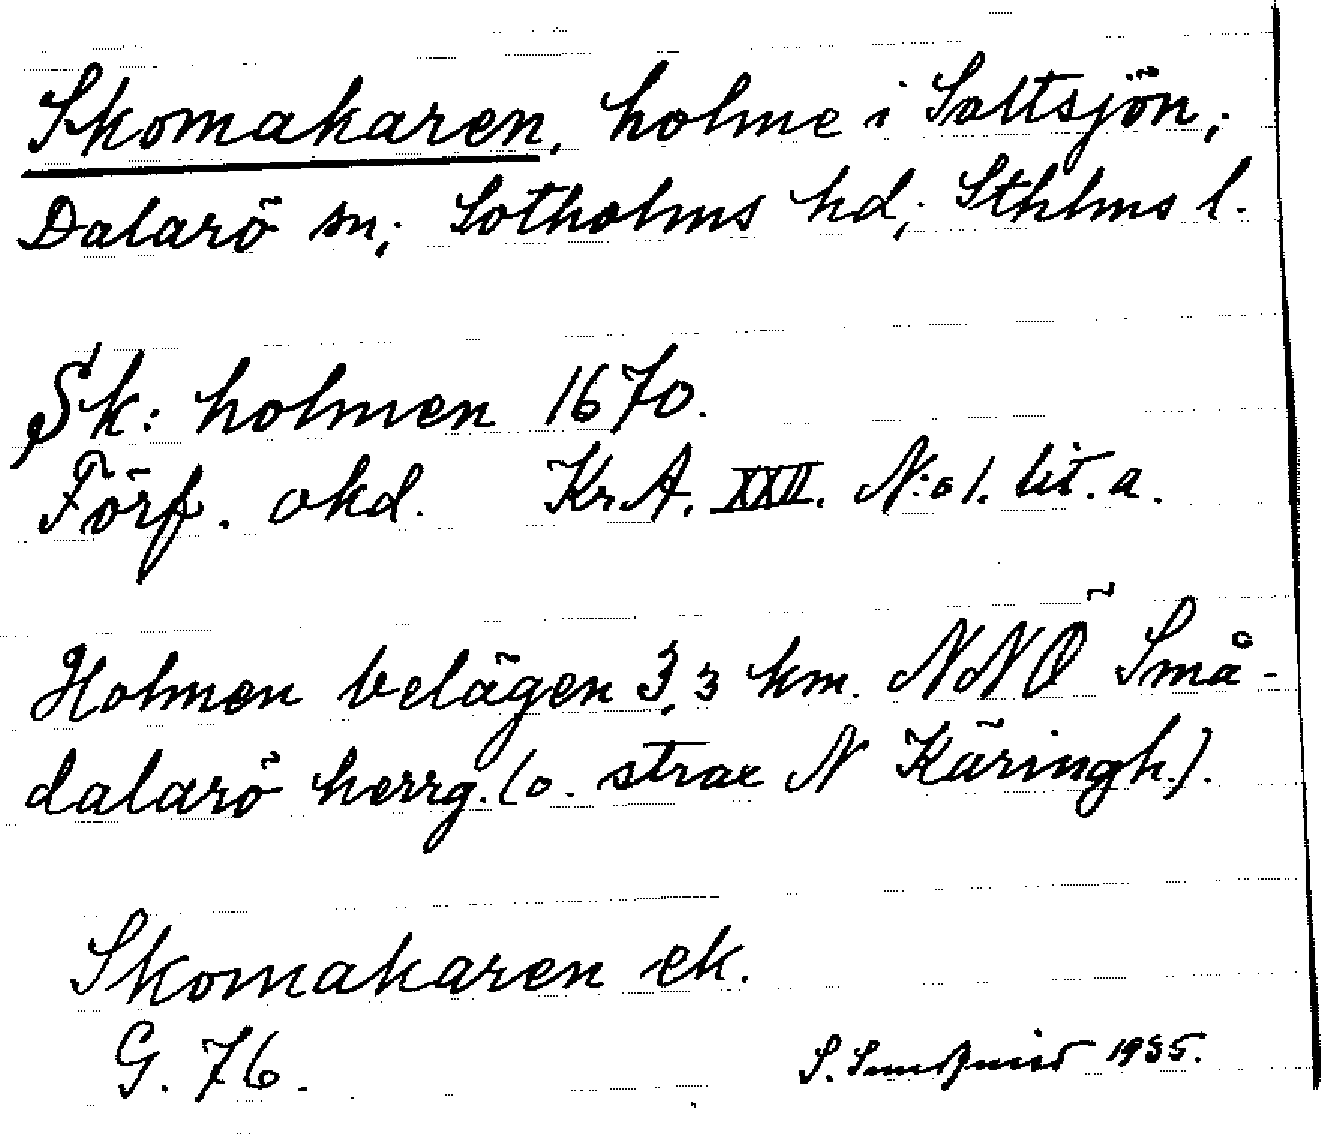 Skomakaren, holme i Saltsjön;
Dalarö sn; Sotholms hd; Sthlms l.
Sk: holmen 1670.
Förf. okd. KrA. XXII. N:o 1. lit. a.
Holmen belägen 3,3 km. NNÖ Små-
dalarö herrg. (o. strax N Käringh.).
Skomakaren ek.
G. 76.
S. 1935.